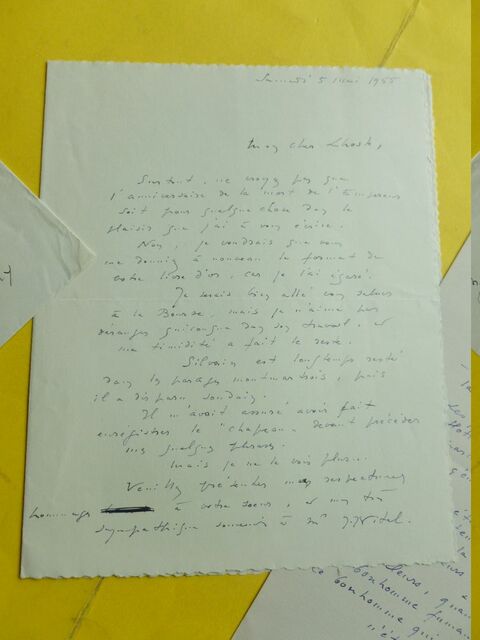 Samedi 5 Mai 1955
Mon cher Lhoste,
Surtout, ne croyez pas que
l'anniversaire de la mort de l'Empereur
soit pour quelque chose dans le
plaisir que j'ai à vous écrire.
Non, je voudrais que vous
me donniez à nouveau le format de
votre livre d'or, car je l'ai égaré.
Je serais bien allé vous saluer
à la Bourse, mais je n'aime pas
déranger quiconque dans son travail, et
ma timidité a fait le reste.
Silvain est longtemps resté
dans les parages montmartrois, puis
il a disparu soudain.
Il m'avait assuré avoir fait
enregistrer le "chapeau" devant précéder
mes quelques phrases.
Mais je ne le vois plus...
Veuillez présenter mes respectueux
hommages à votre soeur, et mon très
sympathique souvenir à Mr J. Vital.
leurs, quan
ce bonhomme fuman
bonhomme qui